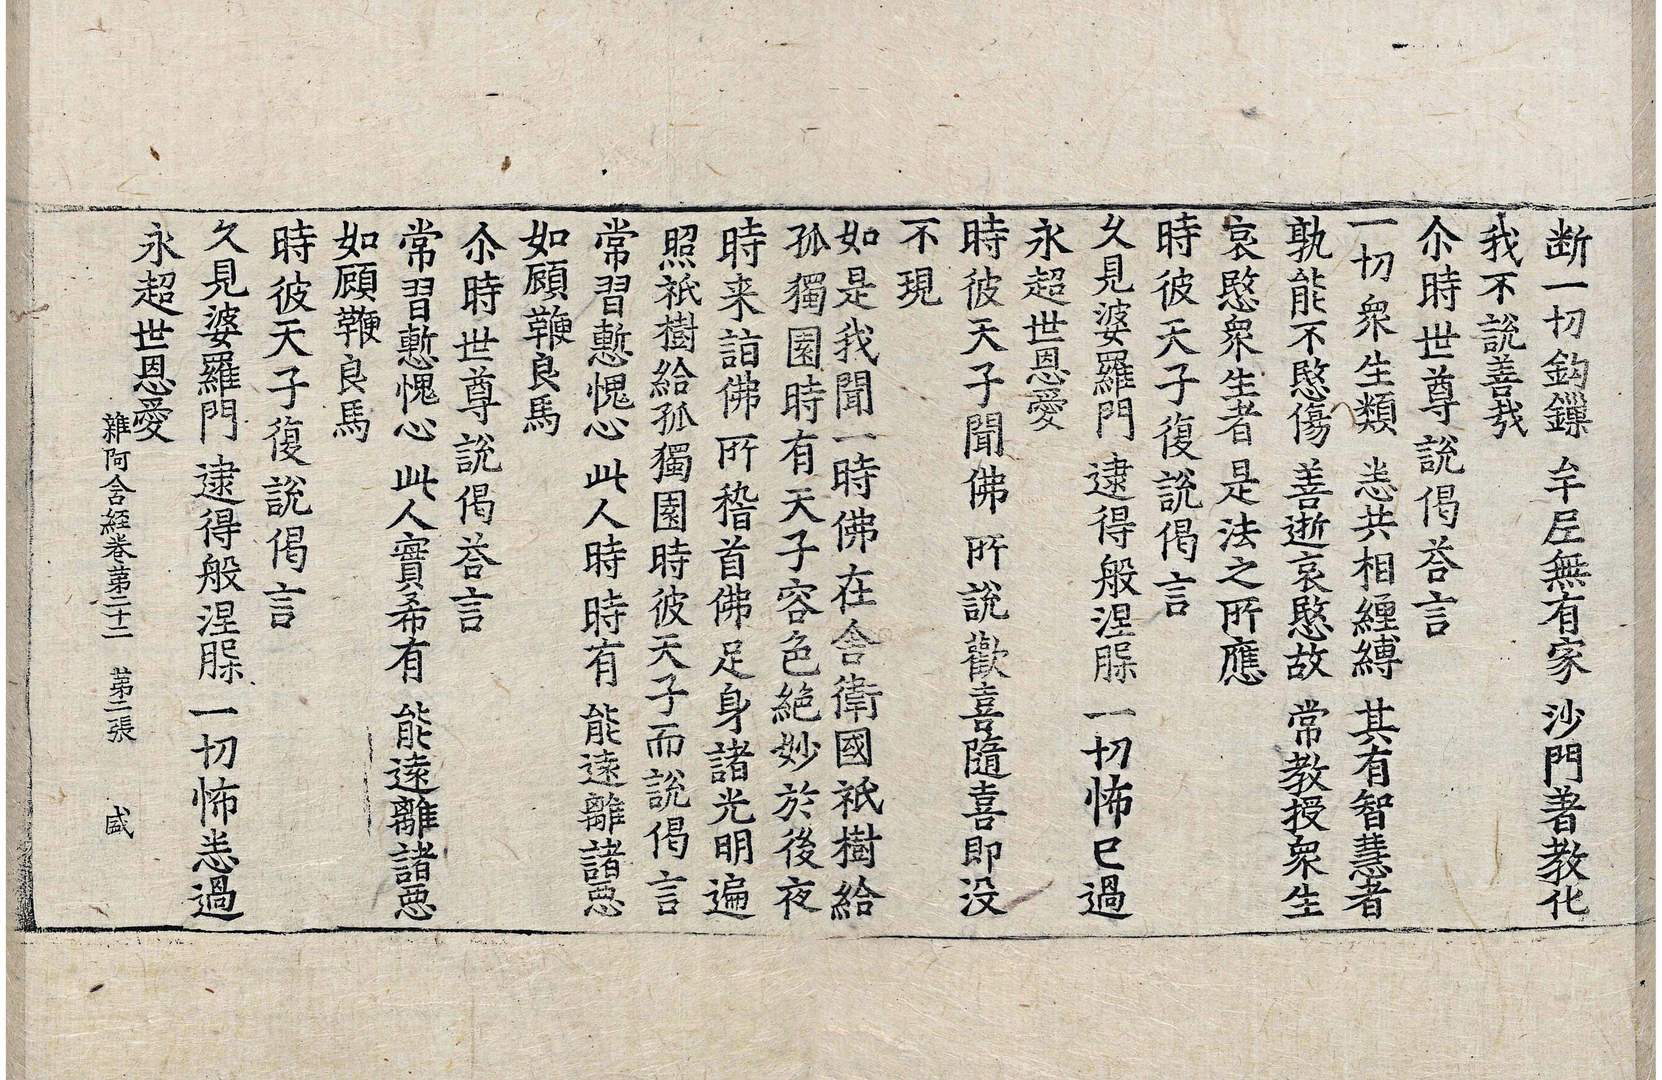 断一切鈎鏁 牟𡰱無有家 沙門著教化
我不說善㦲
尒時世尊說偈荅言
一切衆生類 恙共相纒縛 其有智慧者
孰能不愍傷 善逝哀愍故 常教授衆生
哀愍衆生者 是法之所應
時彼天子復說偈言
久見婆羅門 逮得般涅槃 一切怖已過
永超世恩愛
時彼天子聞佛所說歡喜隨喜即没
不現
如是我聞一時佛在舍衛國祇樹給
孤獨園時有天子容色絶妙於後夜
時来詣佛所稽首佛足身諸光明遍
照祇樹給孤獨園時彼天子而說偈言
常習慙愧心 此人時時有 能遠離諸惡
如顧鞭良馬
尒時世尊說偈荅言
常習慙愧心 此人實希有 能遠離諸惡
如顧鞭良馬
時彼天子復說偈言
久見婆羅門 逮得般涅槃 一切怖恙過
永超世恩愛
雜阿含経巻苐二十二 苐二張 盛